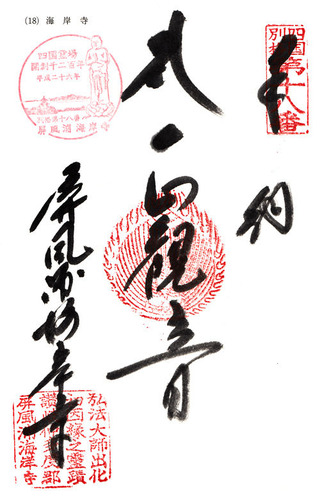 (18) 海岸寺
四国霊場
開創千二百年
平成二十六年
別格第十八番
屏風浦海岸寺
四国
別格
第十八番
奉納
観音
屏風浦海岸寺
弘法大師出化
因縁之靈蹟
屏風浦海岸寺